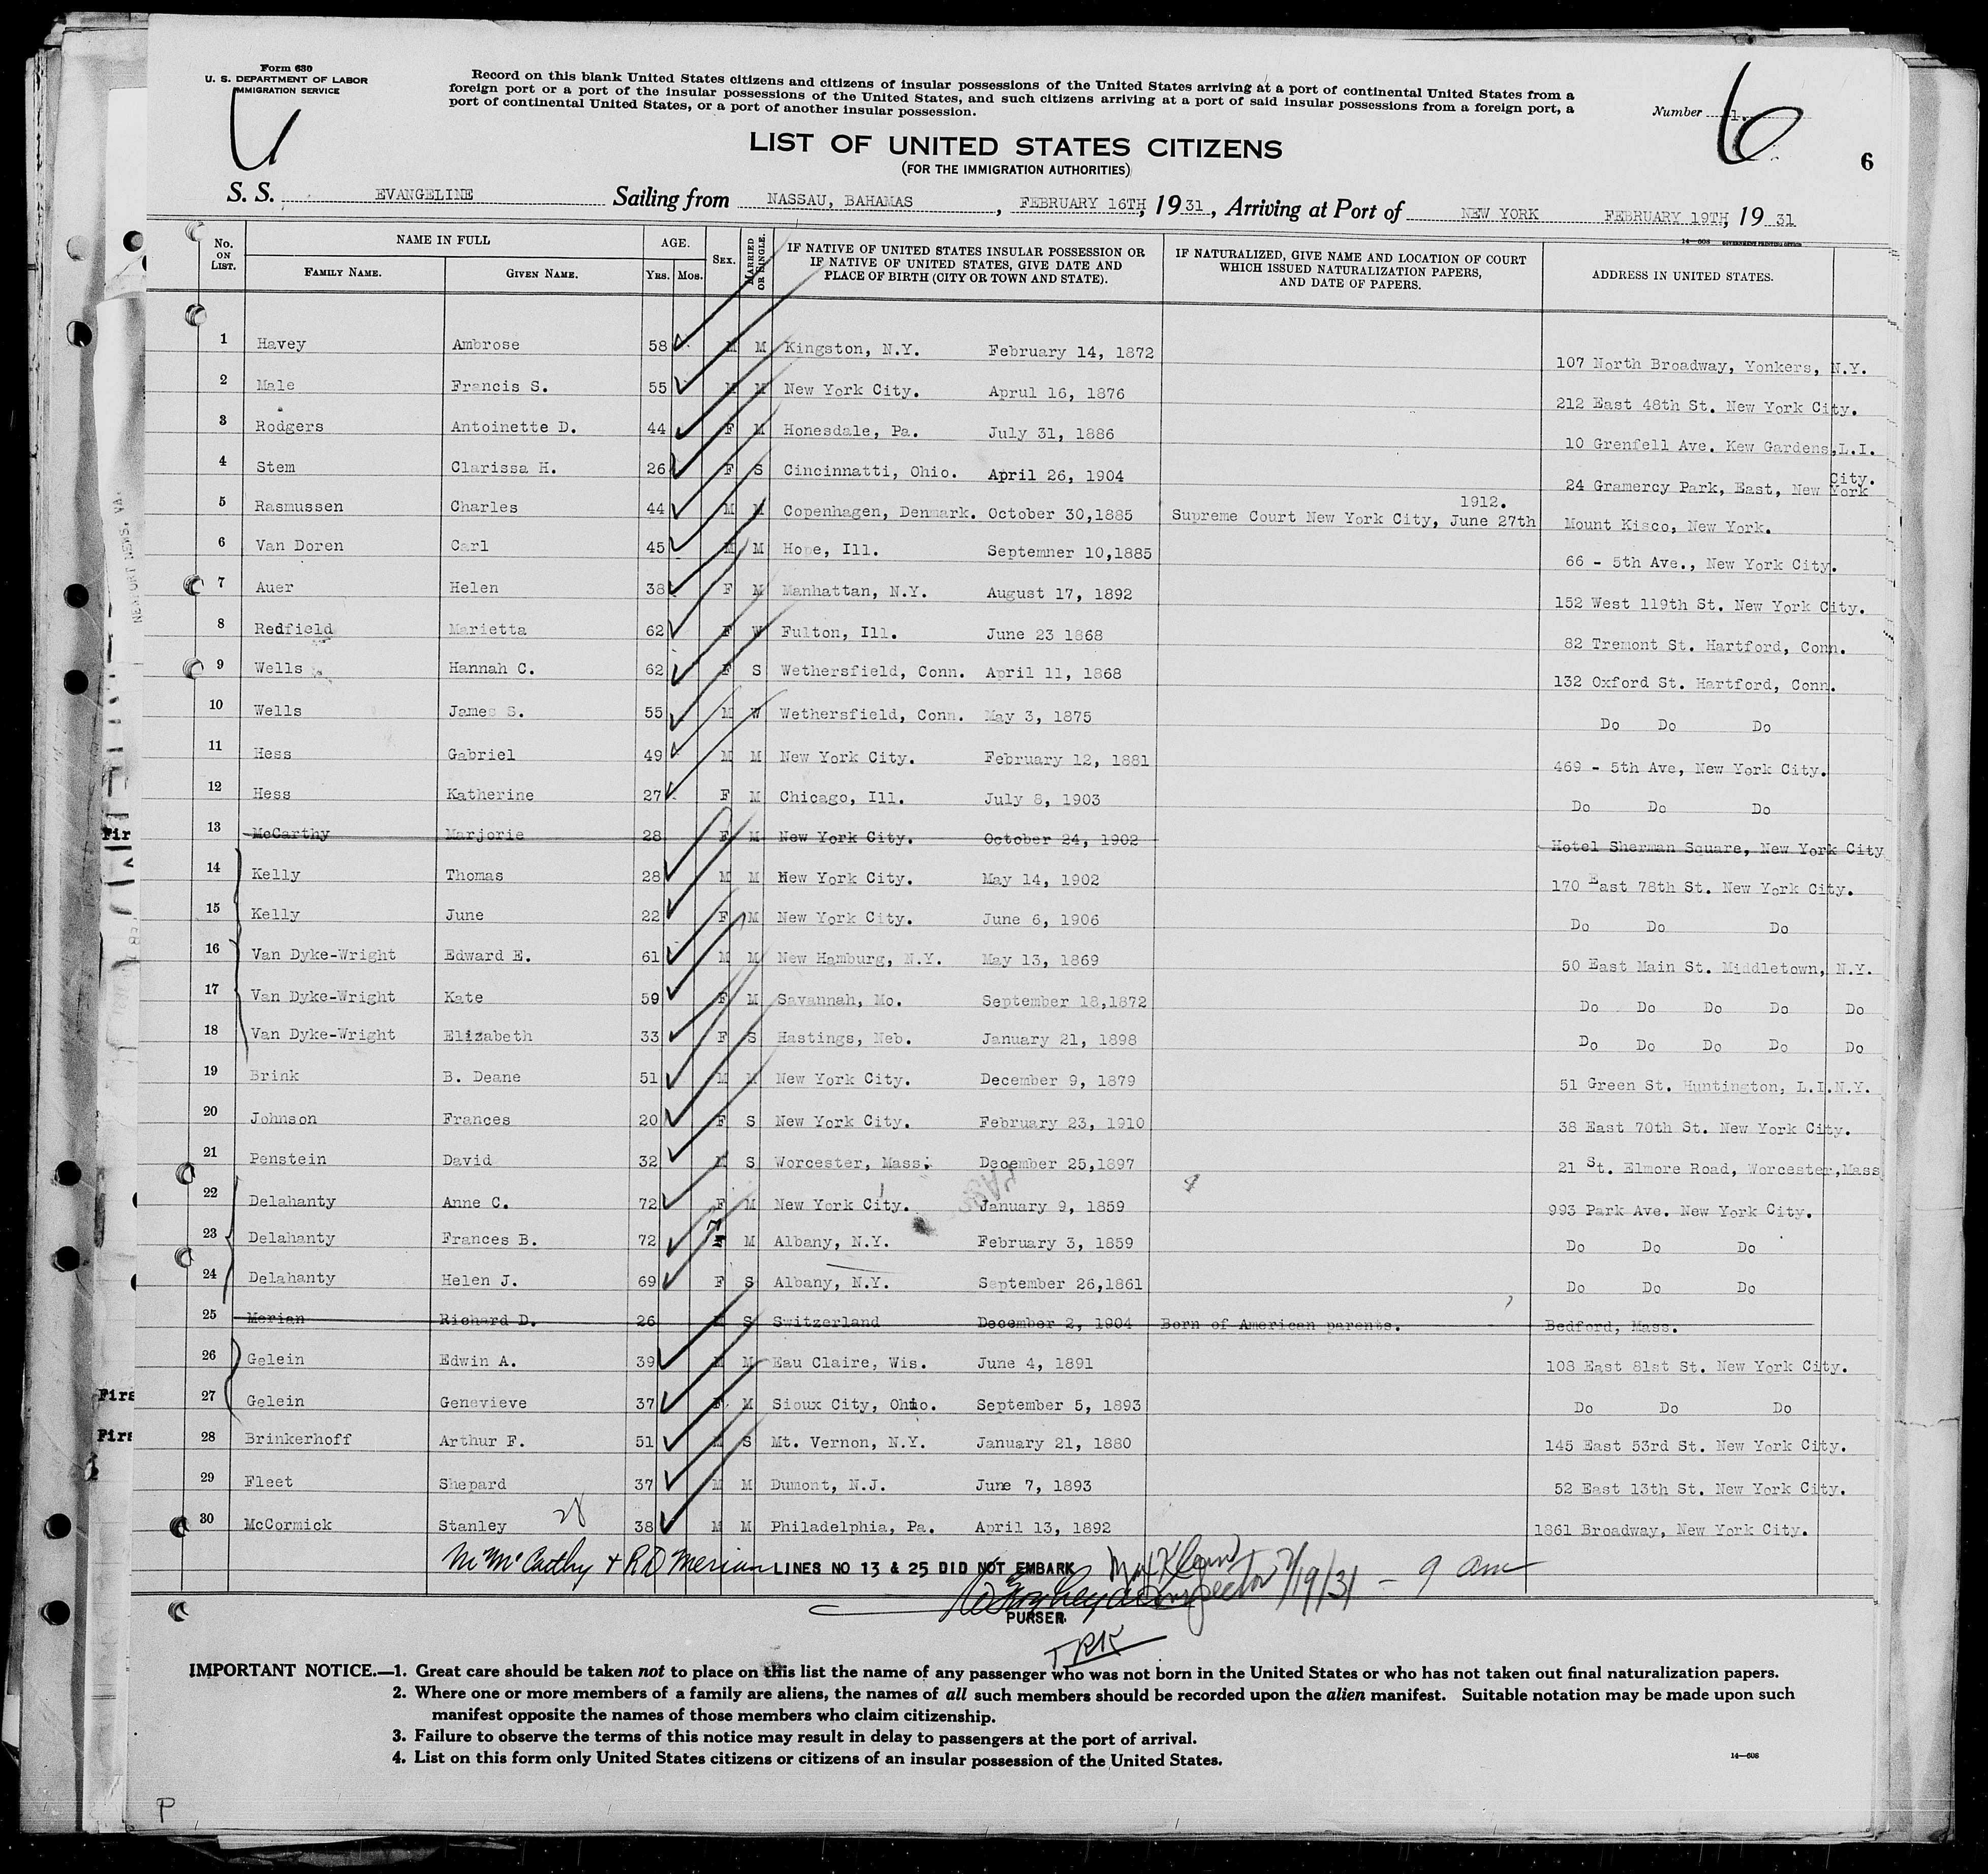 Form 630
U. S. DEPARTMENT OF LABOR
IMMIGRATION SERVICE
Record on this blank United States citizens and citizens of insular possessions of the United States arriving at a port of continental United States from a
foreign port or a port of the insular possessions of the United States, and such citizens arriving at a port of said insular possessions from a foreign port, a
port of continental United States, or a port of another insular possession.
Number 1.
6
6
LIST OF UNITED STATES CITIZENS
(FOR THE IMMIGRATION AUTHORITIES)
S. S. EVANGELINE Sailing from NASSAU, BAHAMAS, FEBRUARY 16TH, 1931, Arriving at Port of NEW YORK FEBRUARY 19TH, 1931
14—608 GOVERNMENT PRINTING OFFICE
No. ON LIST. NAME IN FULL FAMILY NAME. GIVEN NAME. AGE. YRS. MOS. SEX. MARRIED OR SINGLE. IF NATIVE OF UNITED STATES INSULAR POSSESSION OR IF NATIVE OF UNITED STATES, GIVE DATE AND PLACE OF BIRTH (CITY OR TOWN AND STATE). IF NATURALIZED, GIVE NAME AND LOCATION OF COURT WHICH ISSUED NATURALIZATION PAPERS, AND DATE OF PAPERS. ADDRESS IN UNITED STATES.
1 Havey Ambrose 58 M M Kingston, N.Y. February 14, 1872 107 North Broadway, Yonkers, N.Y.
2 Male Francis S. 55 M M New York City. Aprul 16, 1876 212 East 48th St. New York City.
3 Rodgers Antoinette D. 44 F M Honesdale, Pa. July 31, 1886 10 Grenfell Ave. Kew Gardens,L.I.
4 Stem Clarissa H. 26 F S Cincinnatti, Ohio. April 26, 1904 24 Gramercy Park, East, New York City.
5 Rasmussen Charles 44 M M Copenhagen, Denmark. October 30,1885 Supreme Court New York City, June 27th 1912. Mount Kisco, New York.
6 Van Doren Carl 45 M M Hope, Ill. Septemner 10,1885 66 - 5th Ave., New York City.
7 Auer Helen 38 F M Manhattan, N.Y. August 17, 1892 152 West 119th St. New York City.
8 Redfield Marietta 62 F W Fulton, Ill. June 23 1868 82 Tremont St. Hartford, Conn.
9 Wells Hannah C. 62 F S Wethersfield, Conn. April 11, 1868 132 Oxford St. Hartford, Conn.
10 Wells James S. 55 M W Wethersfield, Conn. May 3, 1875 Do Do Do
11 Hess Gabriel 49 M M New York City. February 12, 1881 469 - 5th Ave, New York City.
12 Hess Katherine 27 F M Chicago, Ill. July 8, 1903 Do Do Do
13 McCarthy Marjorie 28 F M New York City. October 24, 1902 Hotel Sherman Square, New York City
14 Kelly Thomas 28 M M New York City. May 14, 1902 170 East 78th St. New York City.
15 Kelly June 22 F M New York City. June 6, 1906 Do Do Do
16 Van Dyke-Wright Edward E. 61 M M New Hamburg, N.Y. May 13, 1869 50 East Main St. Middletown, N.Y.
17 Van Dyke-Wright Kate 59 F M Savannah, Mo. September 18,1872 Do Do Do Do Do
18 Van Dyke-Wright Elizabeth 33 F S Hastings, Neb. January 21, 1898 Do Do Do Do Do
19 Brink B. Deane 51 M M New York City. December 9, 1879 51 Green St. Huntington, L.I.N.Y.
20 Johnson Frances 20 F S New York City. February 23, 1910 38 East 70th St. New York City.
21 Penstein David 32 M S Worcester, Mass. December 25,1897 21 St. Elmore Road, Worcester,Mass
22 Delahanty Anne C. 72 F M New York City. January 9, 1859 993 Park Ave. New York City.
23 Delahanty Frances B. 72 F M Albany, N.Y. February 3, 1859 Do Do Do
24 Delahanty Helen J. 69 F S Albany, N.Y. September 26,1861 Do Do Do
25 Merian Richard D. 26 M S Switzerland December 2, 1904 Born of American parents. Bedford, Mass.
26 Gelein Edwin A. 39 M M Eau Claire, Wis. June 4, 1891 108 East 81st St. New York City.
27 Gelein Genevieve 37 F M Sioux City, Ohio. September 5, 1893 Do Do Do
28 Brinkerhoff Arthur F. 51 M S Mt. Vernon, N.Y. January 21, 1880 145 East 53rd St. New York City.
29 Fleet Shepard 37 M M Dumont, N.J. June 7, 1893 52 East 13th St. New York City.
30 McCormick Stanley 28 38 M M Philadelphia, Pa. April 13, 1892 1861 Broadway, New York City.
M McCarthy + R D Merian LINES NO 13 & 25 DID NOT EMBARK
Inspector 2/19/31 - 9 am
PURSER
IMPORTANT NOTICE.—1. Great care should be taken not to place on this list the name of any passenger who was not born in the United States or who has not taken out final naturalization papers.
2. Where one or more members of a family are aliens, the names of all such members should be recorded upon the alien manifest. Suitable notation may be made upon such
manifest opposite the names of those members who claim citizenship.
3. Failure to observe the terms of this notice may result in delay to passengers at the port of arrival.
4. List on this form only United States citizens or citizens of an insular possession of the United States.
14—608
P